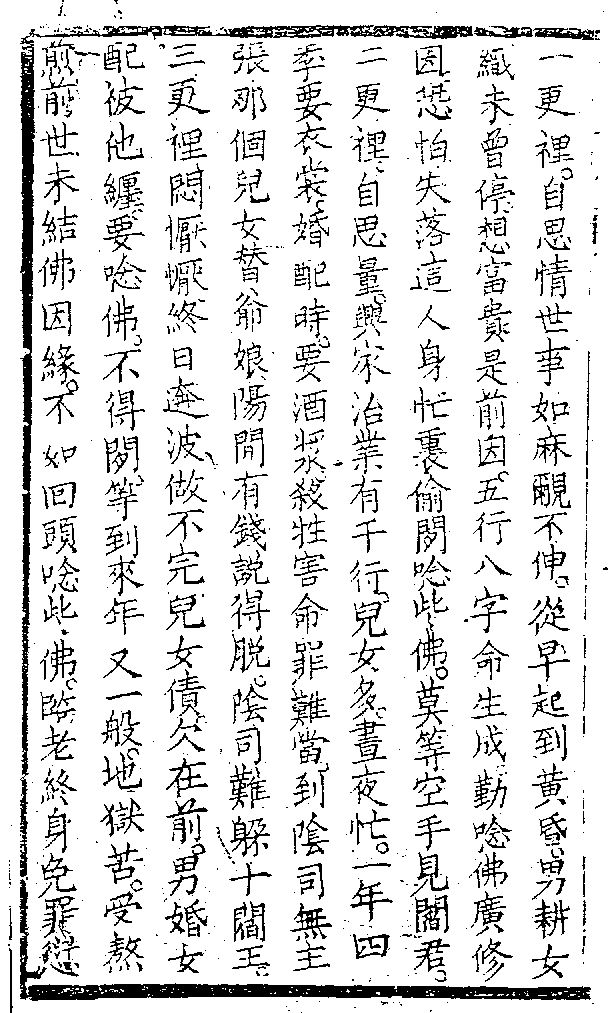 一更裡。自思情世事如麻覼不伸。從早起到黃昏。男耕女
織未曾停。想富貴是前因。五行八字命生成勤唸佛廣修
因。恐怕失落這人身忙裏偷閒唸些佛。莫等空手見閻君。
二更裡。自思量。興家治業有千行。兒女多。晝夜忙。一年四
季要衣裳。婚配時。要酒漿。殺牲害命罪難當。到陰司無主
張那個兒女替爺娘陽間有錢說得脫。陰司難躲十閻王。
三更裡悶懨懨終日奔波做不完兒女債欠在前。男婚女
配被他纏。要唸佛。不得閒。等到來年又一般。地獄苦。受熬
煎前世未結佛因緣。不如回頭唸些佛。臨老終身免罪愆